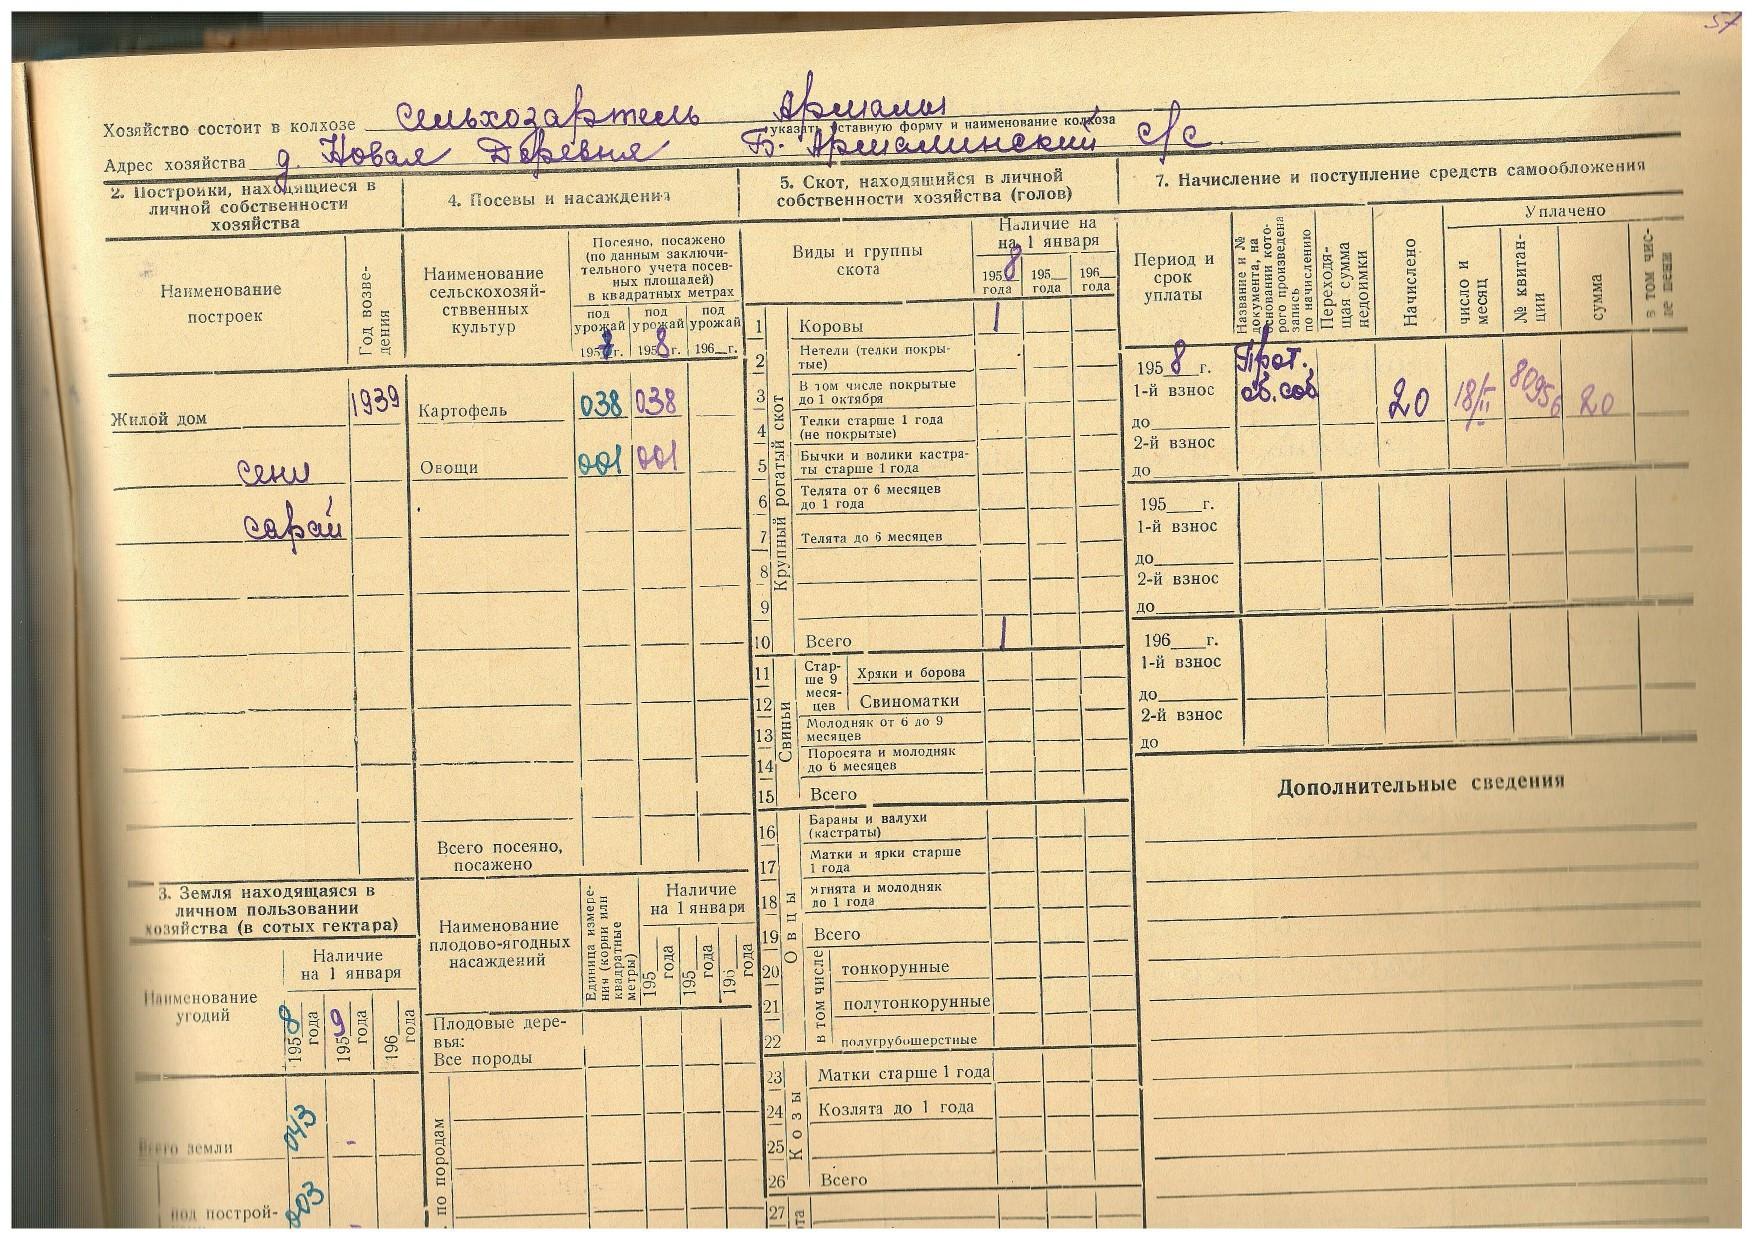 57
Хозяйство состоит в колхозе сельхозартель Армалы
указать уставную форму и наименование колхоза
Адрес хозяйства д. Новая Деревня Б. Армалинский с/с.
2. Постройки, находящиеся в личной собственности хозяйства
Наименование построек
Год возведения
Жилой дом 1939
сени
сарай
3. Земля находящаяся в личном пользовании хозяйства (в сотых гектара)
Наименование угодий
Наличие на 1 января
1958 года
1959 года
196__ года
Всего земли 043 -
под построй- 003 -
4. Посевы и насаждения
Наименование сельскохозяйственных культур
Посеяно, посажено (по данным заключительного учета посевных площадей) в квадратных метрах
под урожай 195 г.
под урожай 1958 г.
под урожай 196__г.
Картофель 038 038
Овощи 001 001
Всего посеяно, посажено
Наименование плодово-ягодных насаждений
Единица измерения (корни или квадратные метры)
Наличие на 1 января
195__ года
195__ года
196__ года
Плодовые деревья:
Все породы
по породам
5. Скот, находящийся в личной собственности хозяйства (голов)
Виды и группы скота
Наличие на на 1 января
1958 года
195__ года
196__ года
Крупный рогатый скот
1 Коровы 1
2 Нетели (телки покрытые)
3 В том числе покрытые до 1 октября
4 Телки старше 1 года (не покрытые)
5 Бычки и волики кастраты старше 1 года
6 Телята от 6 месяцев до 1 года
7 Телята до 6 месяцев
8
9
10 Всего 1
Свиньи
Старше 9 месяцев
11 Хряки и борова
12 Свиноматки
13 Молодняк от 6 до 9 месяцев
14 Поросята и молодняк до 6 месяцев
15 Всего
Овцы
16 Бараны и валухи (кастраты)
17 Матки и ярки старше 1 года
18 Ягнята и молодняк до 1 года
19 Всего
в том числе
20 тонкорунные
21 полутонкорунные
22 полугрубошерстные
Козы
23 Матки старше 1 года
24 Козлята до 1 года
25
26 Всего
27
7. Начисление и поступление средств самообложения
Период и срок уплаты
Название и № документа, на основании которого произведена запись по начислению
Переходящая сумма недоимки
Начислено
Уплачено
число и месяц
№ квитанции
сумма
в том числе пени
1958 г. Прот.
1-й взнос об. соб 20 18/II 80956 20
до
2-й взнос
до
195__г.
1-й взнос
до
2-й взнос
до
196__г.
1-й взнос
до
2-й взнос
до
Дополнительные сведения